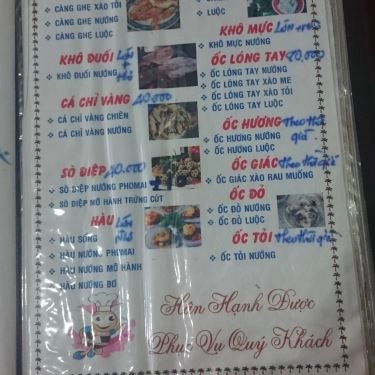 CÀNG GHẸ XÀO TỎI
CÀNG GHẸ NƯỚNG
CÀNG GHẸ LUỘC
KHÔ ĐUỐI
KHÔ ĐUỐI NƯỚNG
CÁ CHỈ VÀNG 40.000
CÁ CHỈ VÀNG CHIÊN
CÁ CHỈ VÀNG NƯỚNG
SÒ ĐIỆP 40.000
SÒ ĐIỆP NƯỚNG PHOMAI
SÒ ĐIỆP MỠ HÀNH TRỨNG CÚT
HÀU
HÀU SỐNG
HÀU NƯỚNG PHOMAI
HÀU NƯỚNG MỠ HÀNH
HÀU NƯỚNG BƠ
LUỘC
KHÔ MỰC
KHÔ MỰC NƯỚNG
ỐC LÓNG TAY
ỐC LÓNG TAY NƯỚNG
ỐC LÓNG TAY XÀO ME
ỐC LÓNG TAY XÀO TỎI
ỐC LÓNG TAY LUỘC
ỐC HƯƠNG Theo thời
giá
ỐC HƯƠNG NƯỚNG
ỐC HƯƠNG LUỘC
ỐC GIÁC Theo thời giá
ỐC GIÁC XÀO RAU MUỐNG
ỐC ĐỎ
ỐC ĐỎ NƯỚNG
ỐC ĐỎ LUỘC
ỐC TỎI Theo thời giá
ỐC TỎI NƯỚNG
Hân Hạnh Được
Phục Vụ Quý Khách